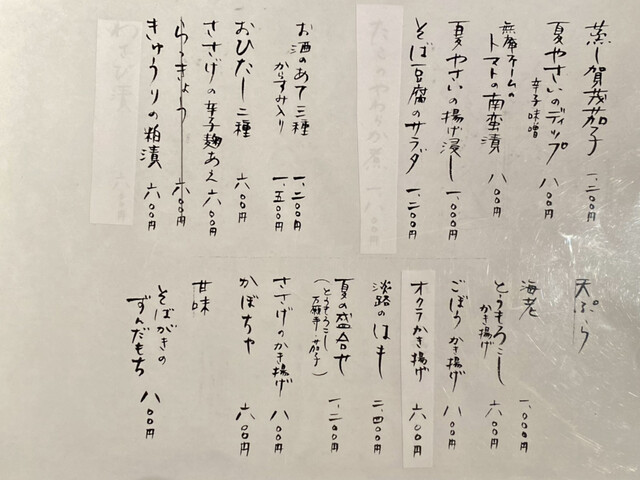 蒸し賀茂茄子 一、二〇〇円
夏やさいのディップ 八〇〇円
辛子味噌
無庵ホームの
トマトの南蛮漬 八〇〇円
夏やさいの揚げ浸し 一、〇〇〇円
そば豆腐のサラダ 一、二〇〇円
お酒のあて三種 一、二〇〇円
からすみ入り 一、五〇〇円
おひたし二種 六〇〇円
ささげの辛子麹あえ 六〇〇円
らっきょう 六〇〇円
きゅうりの粕漬 六〇〇円
天ぷら
海老 一、〇〇〇円
とうもろこし
かき揚げ 六〇〇円
ごぼうかき揚げ 八〇〇円
オクラかき揚げ 六〇〇円
淡路のはも 二、四〇〇円
夏の盛合せ 一、二〇〇円
(とうもろこし
万願寺・茄子)
ささげのかき揚げ 八〇〇円
かぼちゃ 六〇〇円
甘味
そばがきの
ずんだもち 八〇〇円